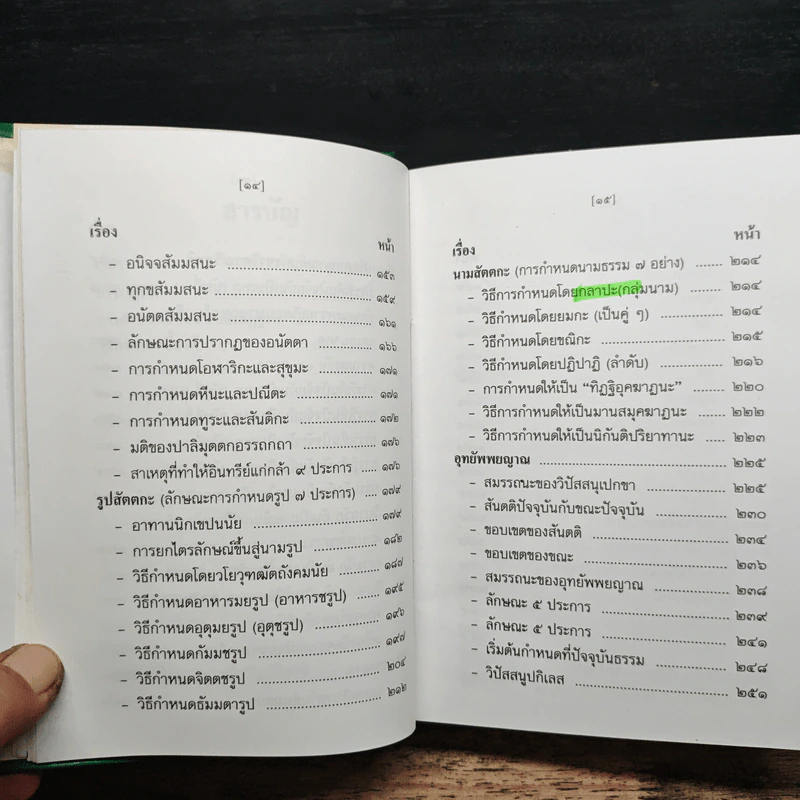 [๑๔]
เรื่อง หน้า
– อนิจจสัมมสนะ ๑๕๓
– ทุกขสัมมสนะ ๑๕๙
– อนัตตสัมมสนะ ๑๖๑
– ลักษณะการปรากฏของอนัตตา ๑๖๖
– การกำหนดโอฬาริกะและสุขุมะ ๑๗๑
– การกำหนดหีนะและปณีตะ ๑๗๑
– การกำหนดทูระและสันติกะ ๑๗๒
– มติของปาลิมุตตกอรรถกถา ๑๗๖
– สาเหตุที่ทำให้อินทรีย์แก่กล้า ๙ ประการ ๑๗๖
รูปสัตตกะ (ลักษณะการกำหนดรูป ๗ ประการ) ๑๗๙
– อาทานนิกเขปนนัย ๑๗๙
– การยกไตรลักษณ์ขึ้นสู่นามรูป ๑๘๒
– วิธีกำหนดโดยวโยวุฑฒัตถังคมนัย ๑๘๗
– วิธีกำหนดอาหารมยรูป (อาหารชรูป) ๑๙๕
– วิธีกำหนดอุตุมยรูป (อุตุชรูป) ๑๙๖
– วิธีกำหนดกัมมชรูป ๑๙๗
– วิธีกำหนดจิตตชรูป ๒๐๔
– วิธีกำหนดธัมมตารูป ๒๑๒
[๑๕]
เรื่อง หน้า
นามสัตตกะ (การกำหนดนามธรรม ๗ อย่าง) ๒๑๔
– วิธีการกำหนดโดยกลาปะ(กลุ่มนาม) ๒๑๔
– วิธีกำหนดโดยยมกะ (เป็นคู่ ๆ) ๒๑๔
– วิธีกำหนดโดยขณิกะ ๒๑๕
– วิธีกำหนดโดยปฏิปาฏิ (ลำดับ) ๒๑๖
– การกำหนดให้เป็น “ทิฏฐิอุคฆาฏนะ” ๒๒๐
– วิธีการกำหนดให้เป็นมานสมุคฆาฏนะ ๒๒๒
– วิธีการกำหนดให้เป็นนิกันติปริยาทานะ ๒๒๓
อุทยัพพยญาณ ๒๒๕
– สมรรถนะของวิปัสสนุเปกขา ๒๒๕
– สันตติปัจจุบันกับขณะปัจจุบัน ๒๓๐
– ขอบเขตของสันตติ ๒๓๔
– ขอบเขตของขณะ ๒๓๖
– สมรรถนะของอุทยัพพยญาณ ๒๓๘
– ลักษณะ ๕ ประการ ๒๓๙
– ลักษณะ ๕ ประการ ๒๔๑
– เริ่มต้นกำหนดที่ปัจจุบันธรรม ๒๔๘
– วิปัสสนูปกิเลส ๒๕๑